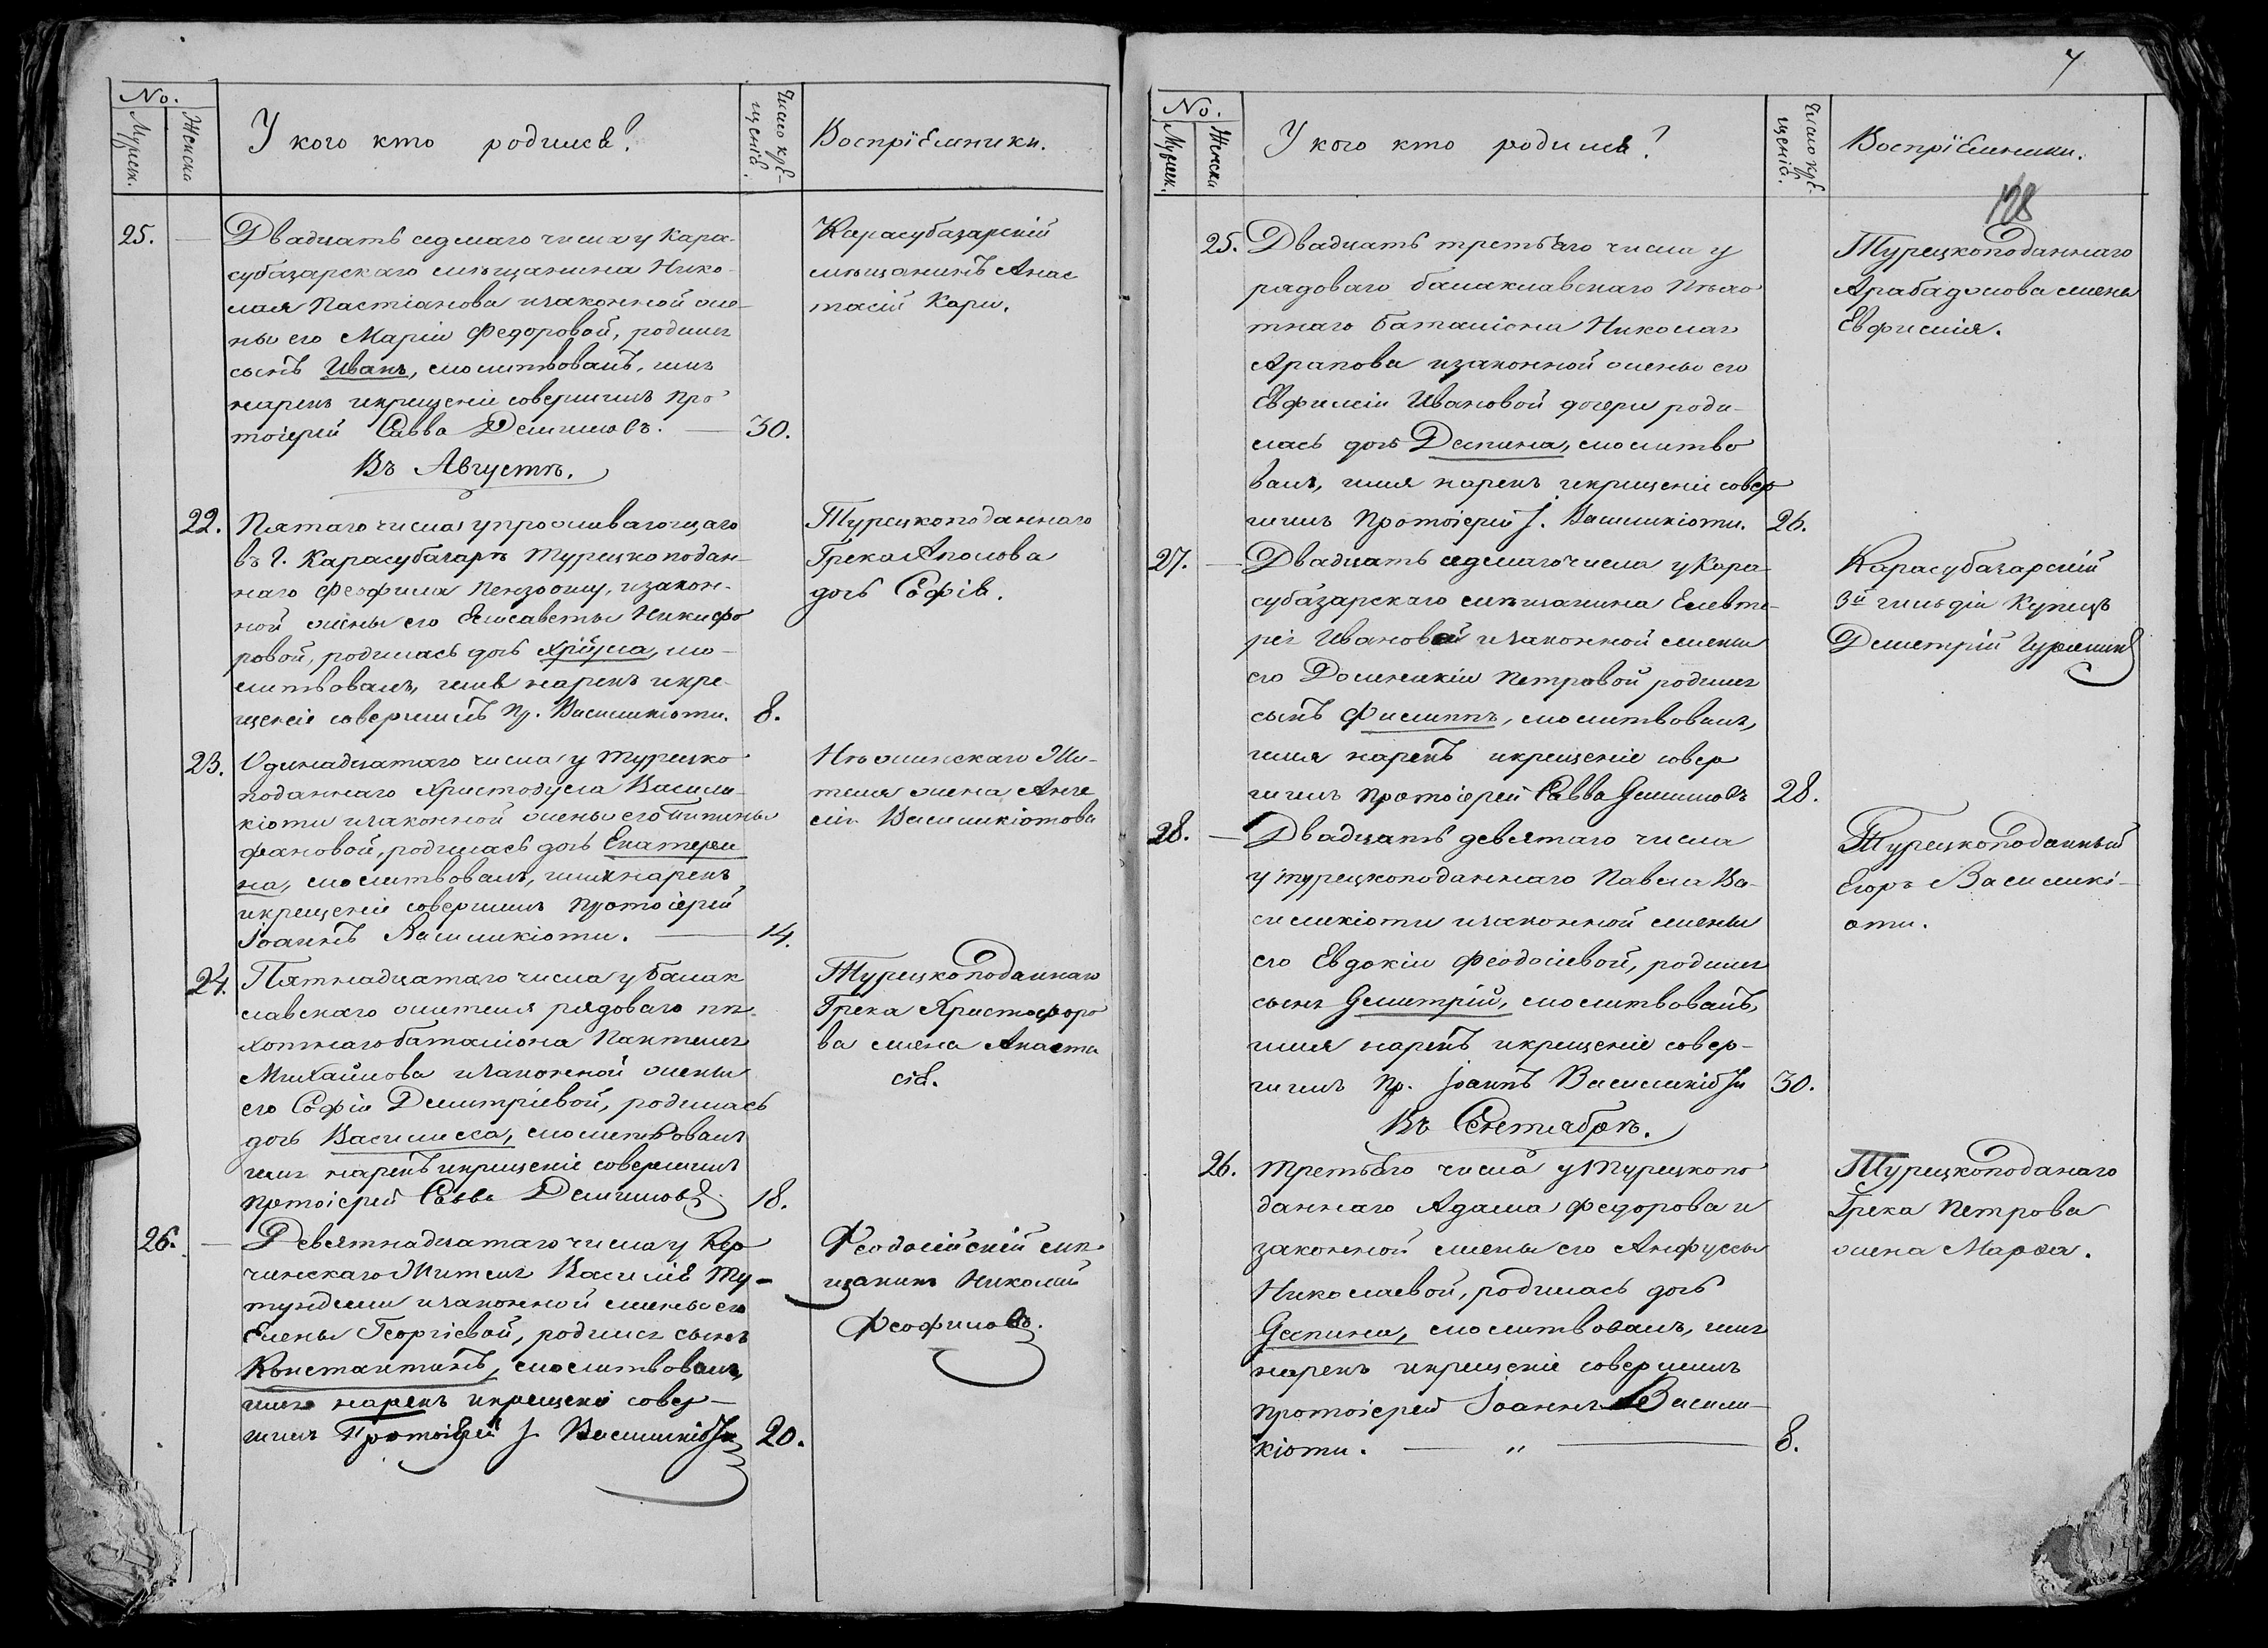 No.
Мужеск.
Женска
У кого кто родился?
Число кре-
щенія.
Воспріемники.
25.
Двадцать седмаго числа у Кара-
субазарскаго мѣщанина Нико-
лая Пастіанова и законной же-
ны его Маріи Федоровой, родился
сынъ Иванъ, молитвовалъ, имя
нарекъ и крещеніе совершилъ про
тоіерей Савва Демишовъ.
30.
Карасубазарскій
мѣщанинъ Анас
тасій Кари.
Въ Августѣ.
22.
Пятаго числа у проживающаго
въ г. Карасубазарѣ Турецкоподан-
наго Феофила и закон-
ной жены его Елисаветы Никифо
ровой, родилась дочь мо-
литвовалъ, имя нарекъ и кре-
щеніе совершилъ Пр. Василикіоти.
8.
Турецкоподаннаго
Грека Аполова
дочь Софія.
23.
Одинадцатаго числа у Турецко
поданнаго Христодула Васили-
кіоти и законной жены его
фановой, родилась дочь Екатери
на, молитвовалъ, имя нарекъ
и крещеніе совершилъ Протоіерей
Іоаннъ Василикіоти.
14.
Нѣжинскаго Жи-
теля жена Анге
Василикіотова
24.
Пятнадцатаго числа у балак
лавскаго жителя рядоваго пѣ-
хотнаго баталіона Пантели
Михайлова и законной жены
его Софіи Димитріевой, родилась
дочь Василисса, молитвовалъ
имя нарекъ и крещеніе совершилъ
протоіерей Савва Демишовъ.
18.
Турецкоподаннаго
Грека Христофоро
ва жена Анаста
сія.
26.
Девятнадцатаго числа у Кер
чинскаго Жителя Василія Ту-
тунджи и законной жены его
Елены Георгіевой, родился сынъ
Константинъ, молитвовалъ,
имя нарекъ и крещеніе совер-
шилъ Протоіерей І. Василикіоти
20.
Феодосійскій мѣ-
щанинъ Николай
Феофиловъ.
7
No.
Мужеск.
Женска
У кого кто родился?
Число кре-
щенія.
Воспріемники.
128
25.
Двадцать третьяго числа у
рядоваго балаклавскаго Пѣхо
тнаго баталіона Николая
Арапова и законной жены его
Евфиміи Ивановой дочери роди-
лась дочь Деспина, молитво
валъ, имя нарекъ и крещеніе совер
шилъ Протоіерей І. Василикіоти.
26.
Турецкоподаннаго
Арабаджова жена
Евфимія.
27.
Двадцать седмаго числа у Кара-
субазарскаго мѣщанина Елевте-
рія Ивановой и законной жены
его Домникіи Петровой родился
сынъ Филиппъ, молитвовалъ,
имя нарекъ и крещеніе совер
шилъ протоіерей Савва Демишовъ
28.
Карасубазарскій
3й гильдіи Купецъ
Дмитрій
28.
Двадцать девятаго числа
у турецкоподаннаго Павла Ва-
силикіоти и законной жены
его Евдокіи Феодосіевой, родился
сынъ Димитрій, молитвовалъ,
имя нарекъ и крещеніе совер-
шилъ Пр. Іоаннъ Василикіоти
30.
Турецкоподанный
Егоръ Василикі-
оти.
Въ Сентябрѣ.
26.
Третьяго числа у Турецкопо
даннаго Адама Федорова и
законной жены его Анфуссы
Николаевой, родилась дочь
Деспина, молитвовалъ, имя
нарекъ и крещеніе совершилъ
протоіерей Іоаннъ Васили-
кіоти. — „ —
8.
Турецкоподанаго
Грека Петрова
жена Марѳа.